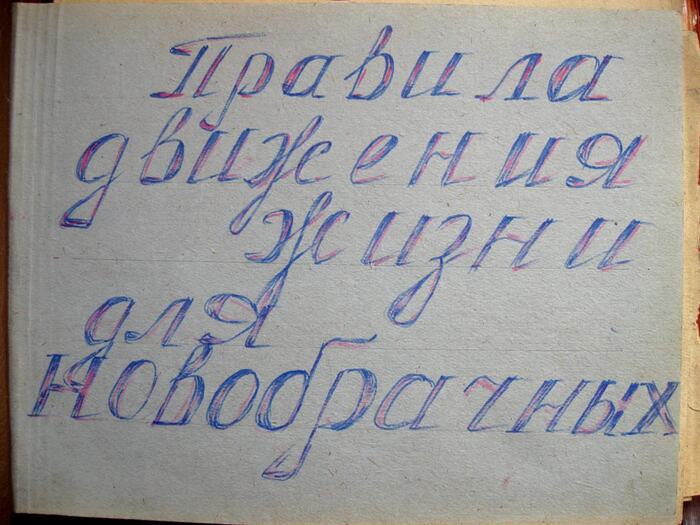 Правила
движения
жизни
для
новобрачных